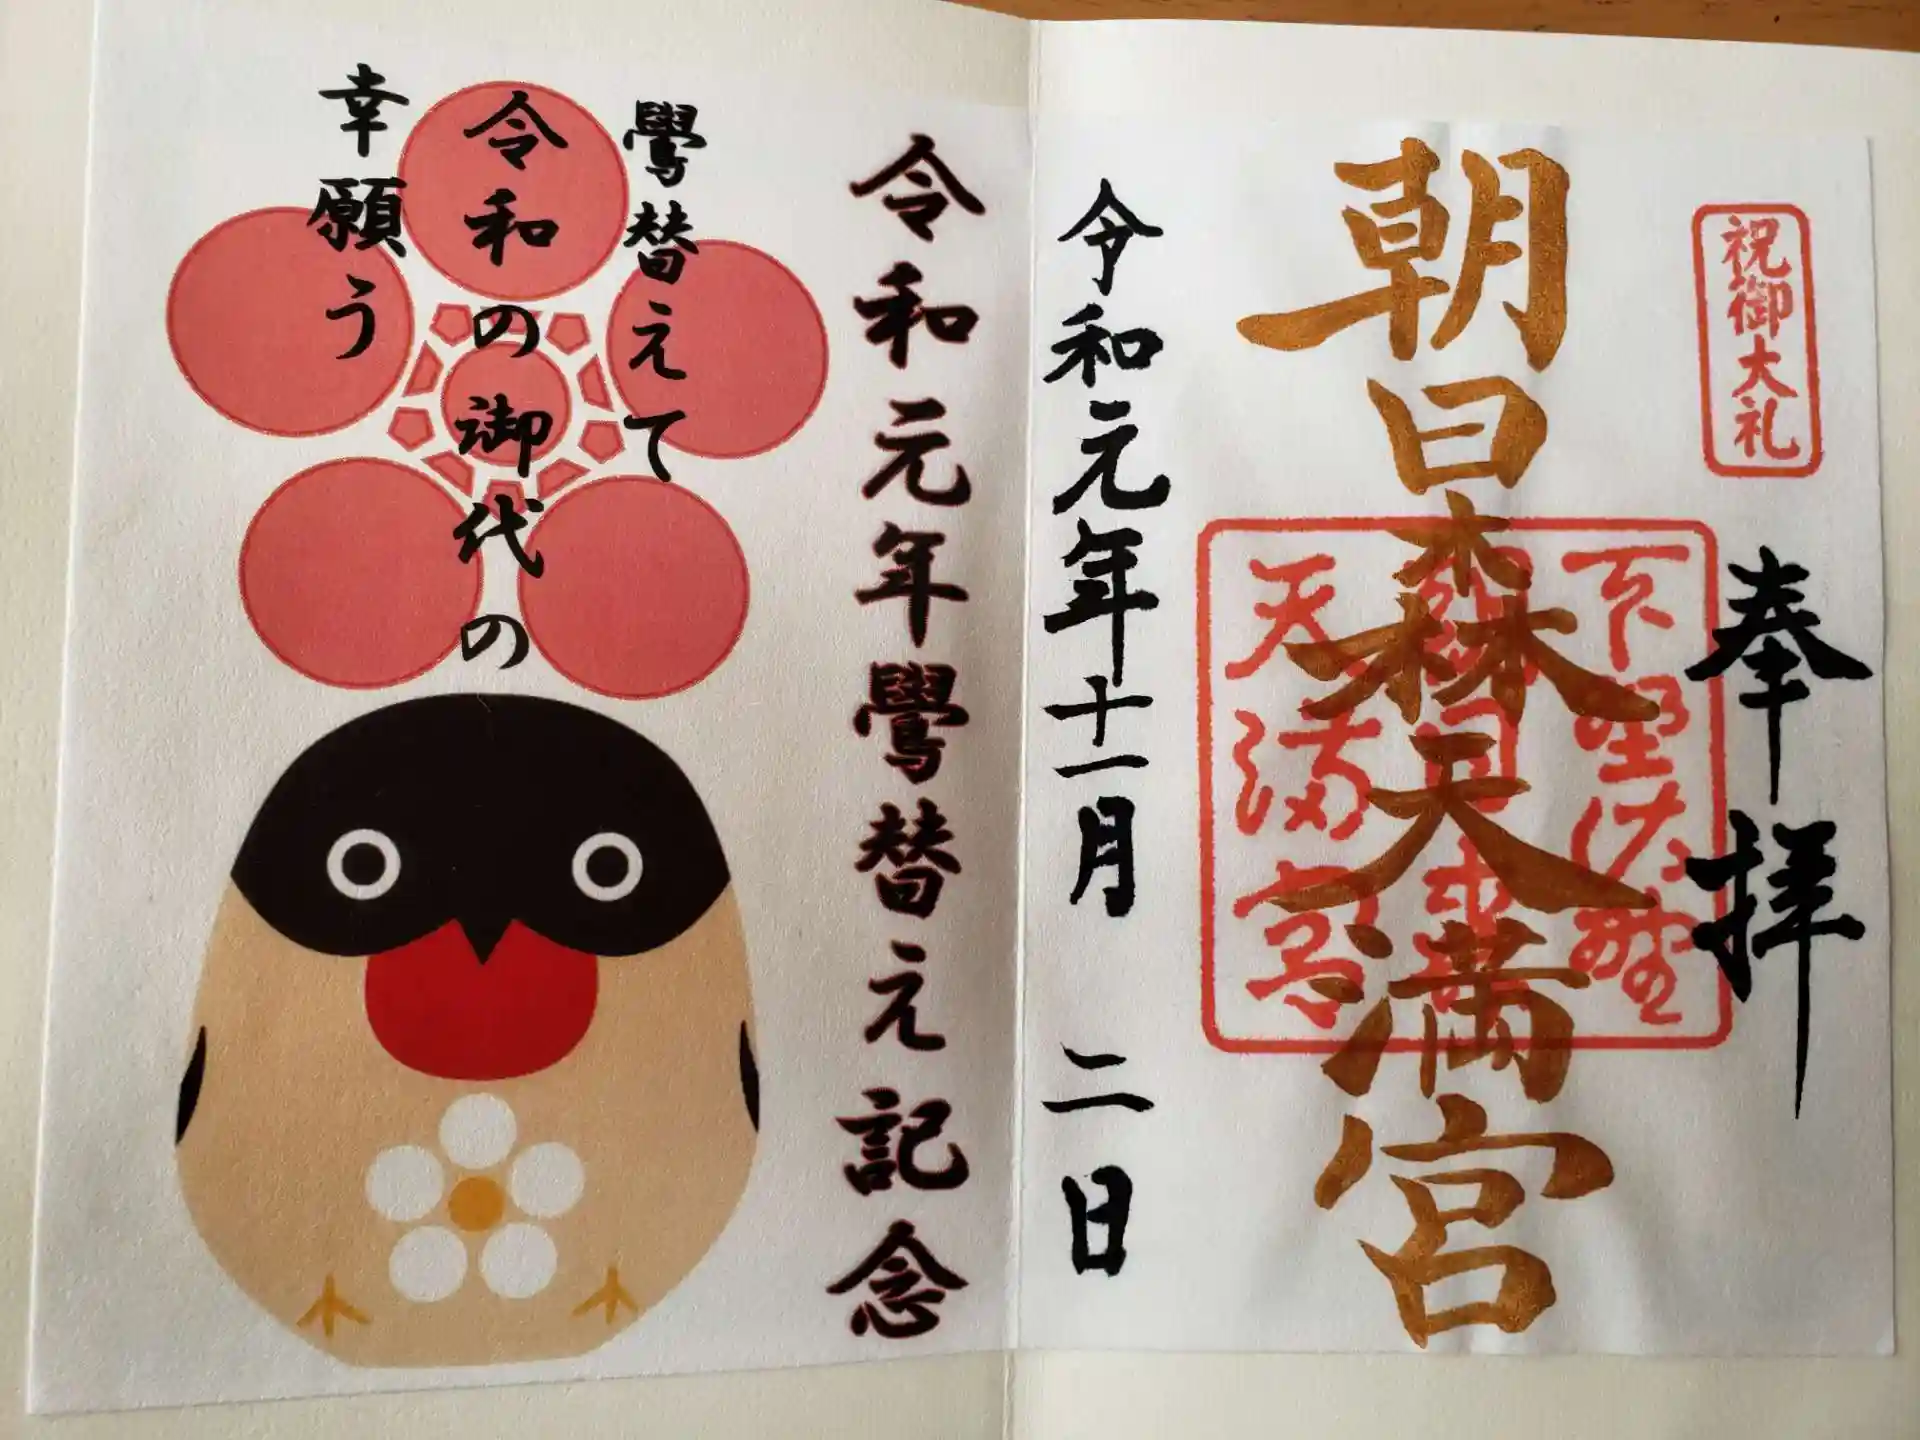 祝御大礼
奉拝
朝日森天満宮
下野佐野
天満宮
令和元年十一月 二日
令和元年鷽替え記念
鷽替えて
令和の御代の
幸願う